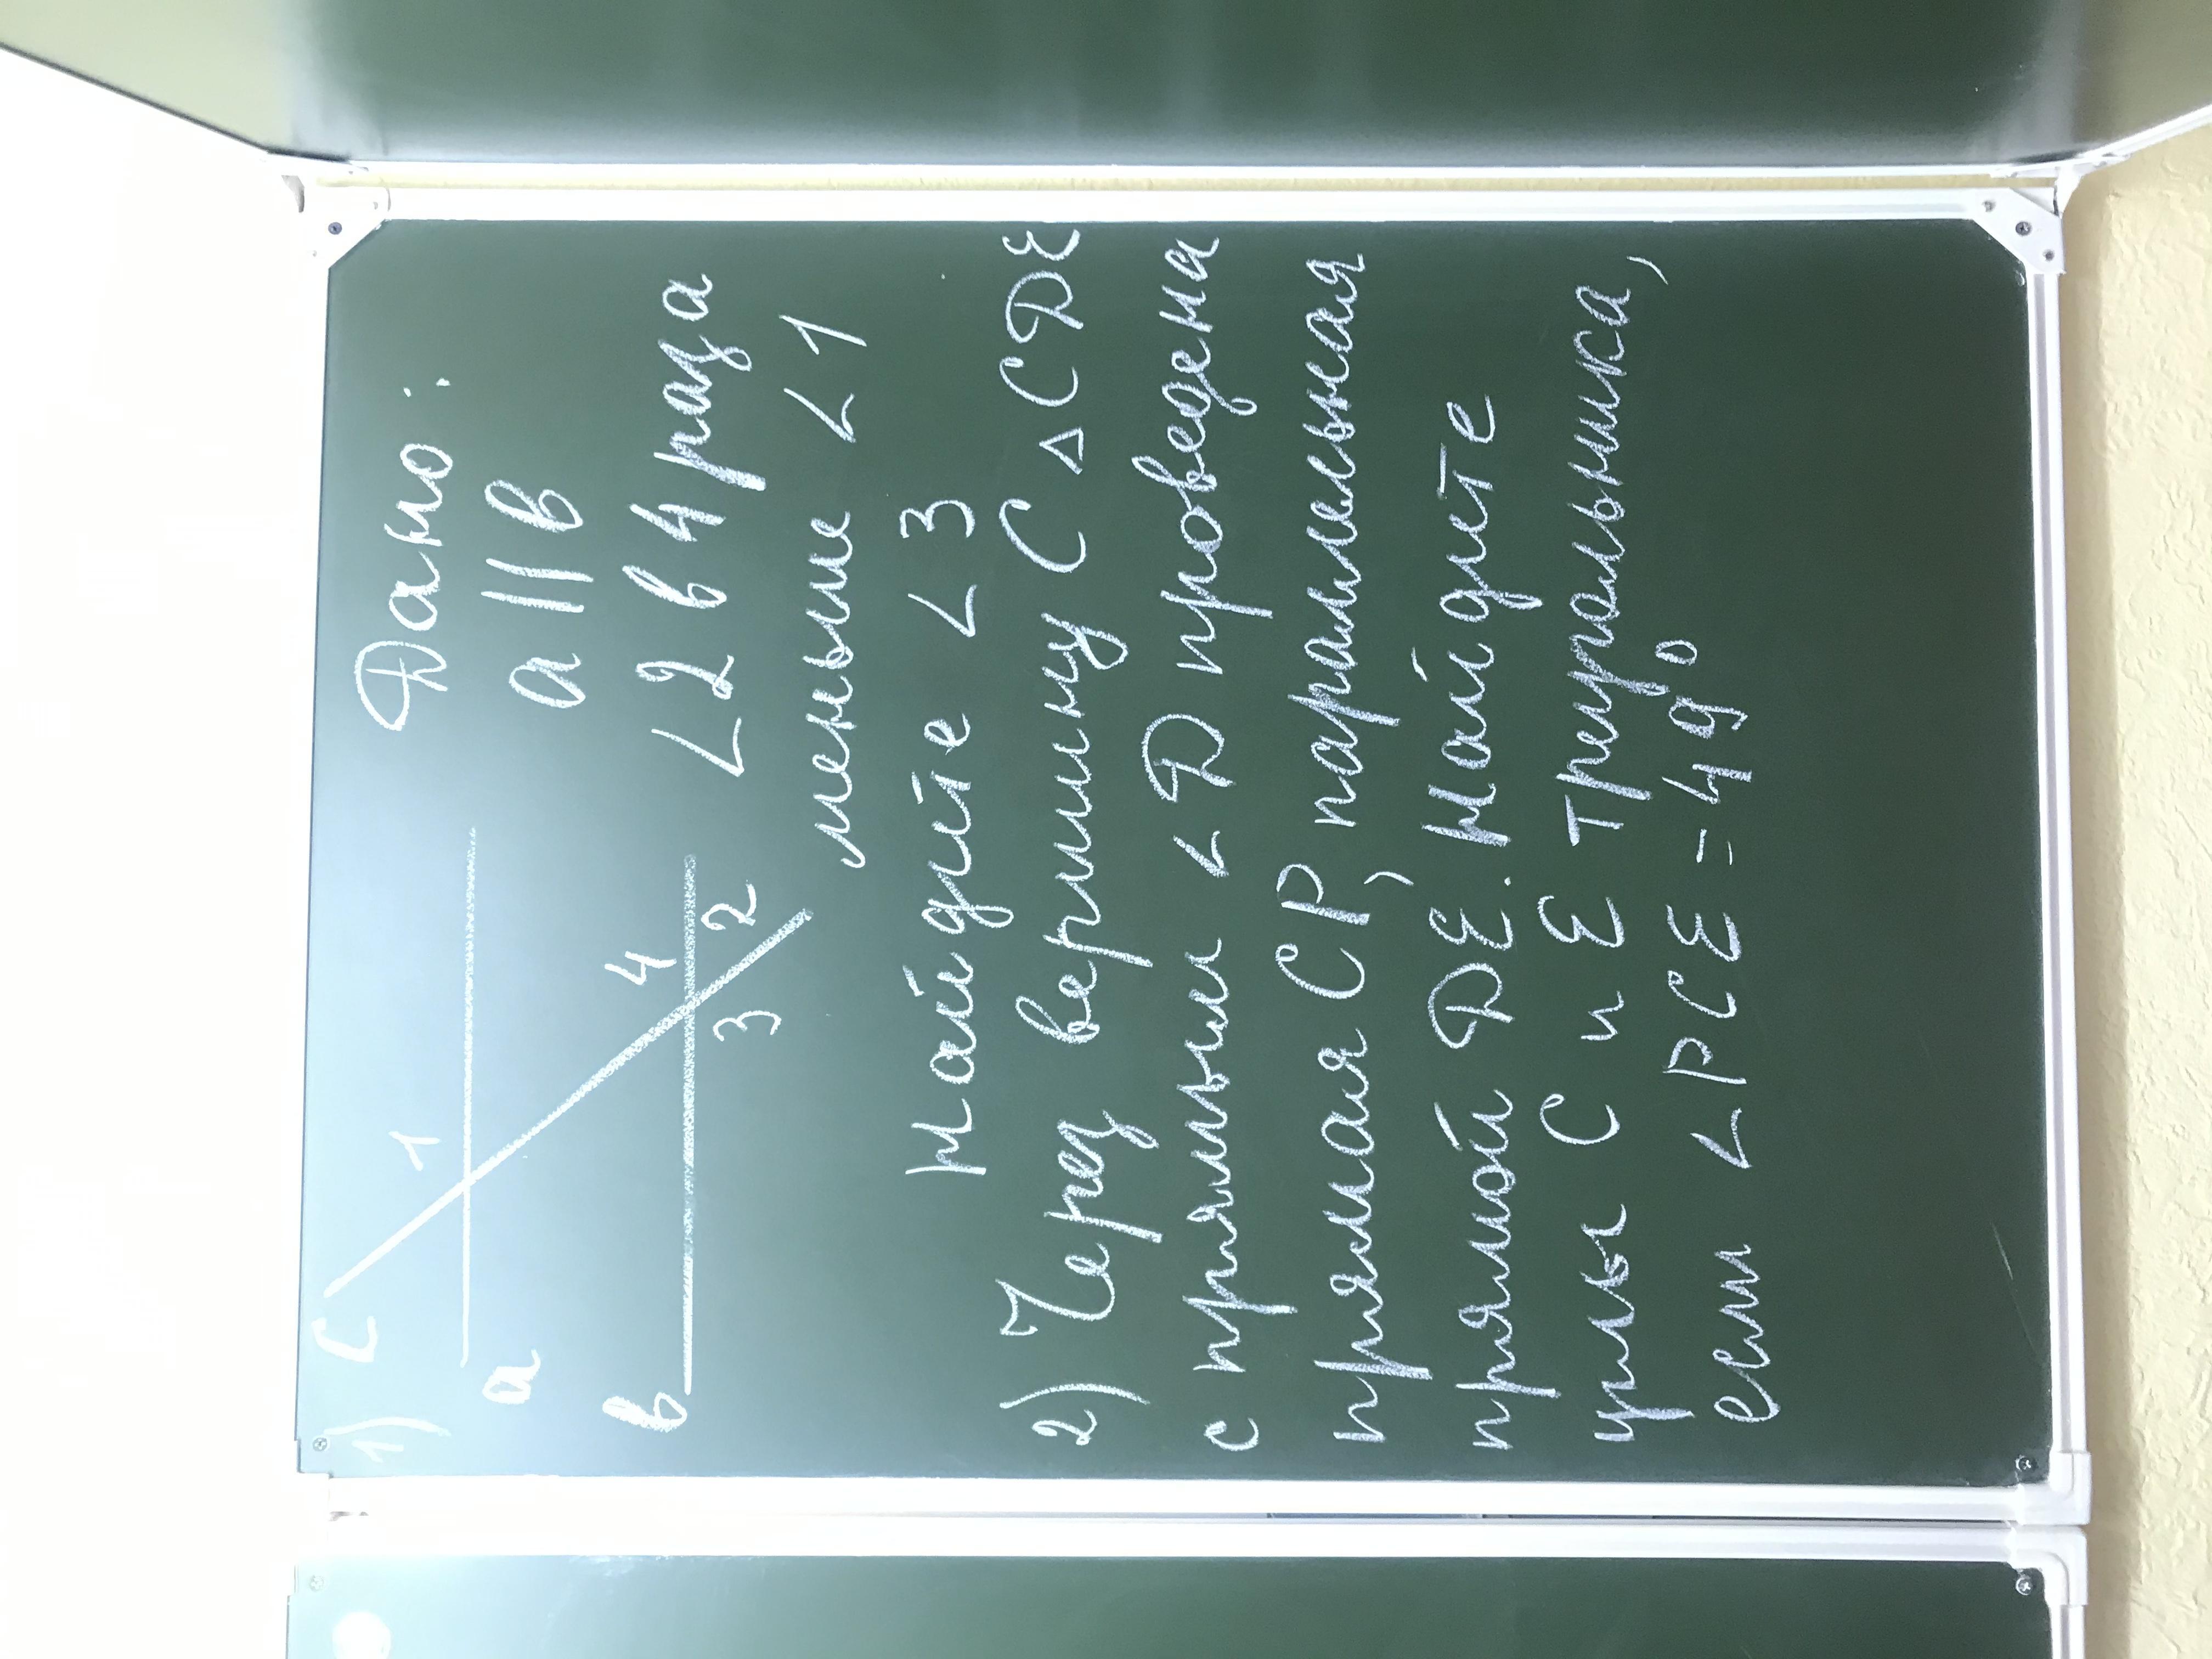 1) c Дано:
a a || в
1
в 4 ∠2 в 4 раза
3 2 меньше ∠1
Найдите ∠3
2) Через вершину С △ СДЕ
с прямым ∠ Д проведена
прямая СР, параллельная
прямой ДЕ. Найдите
углы С и Е треугольника,
если ∠РСЕ = 49°